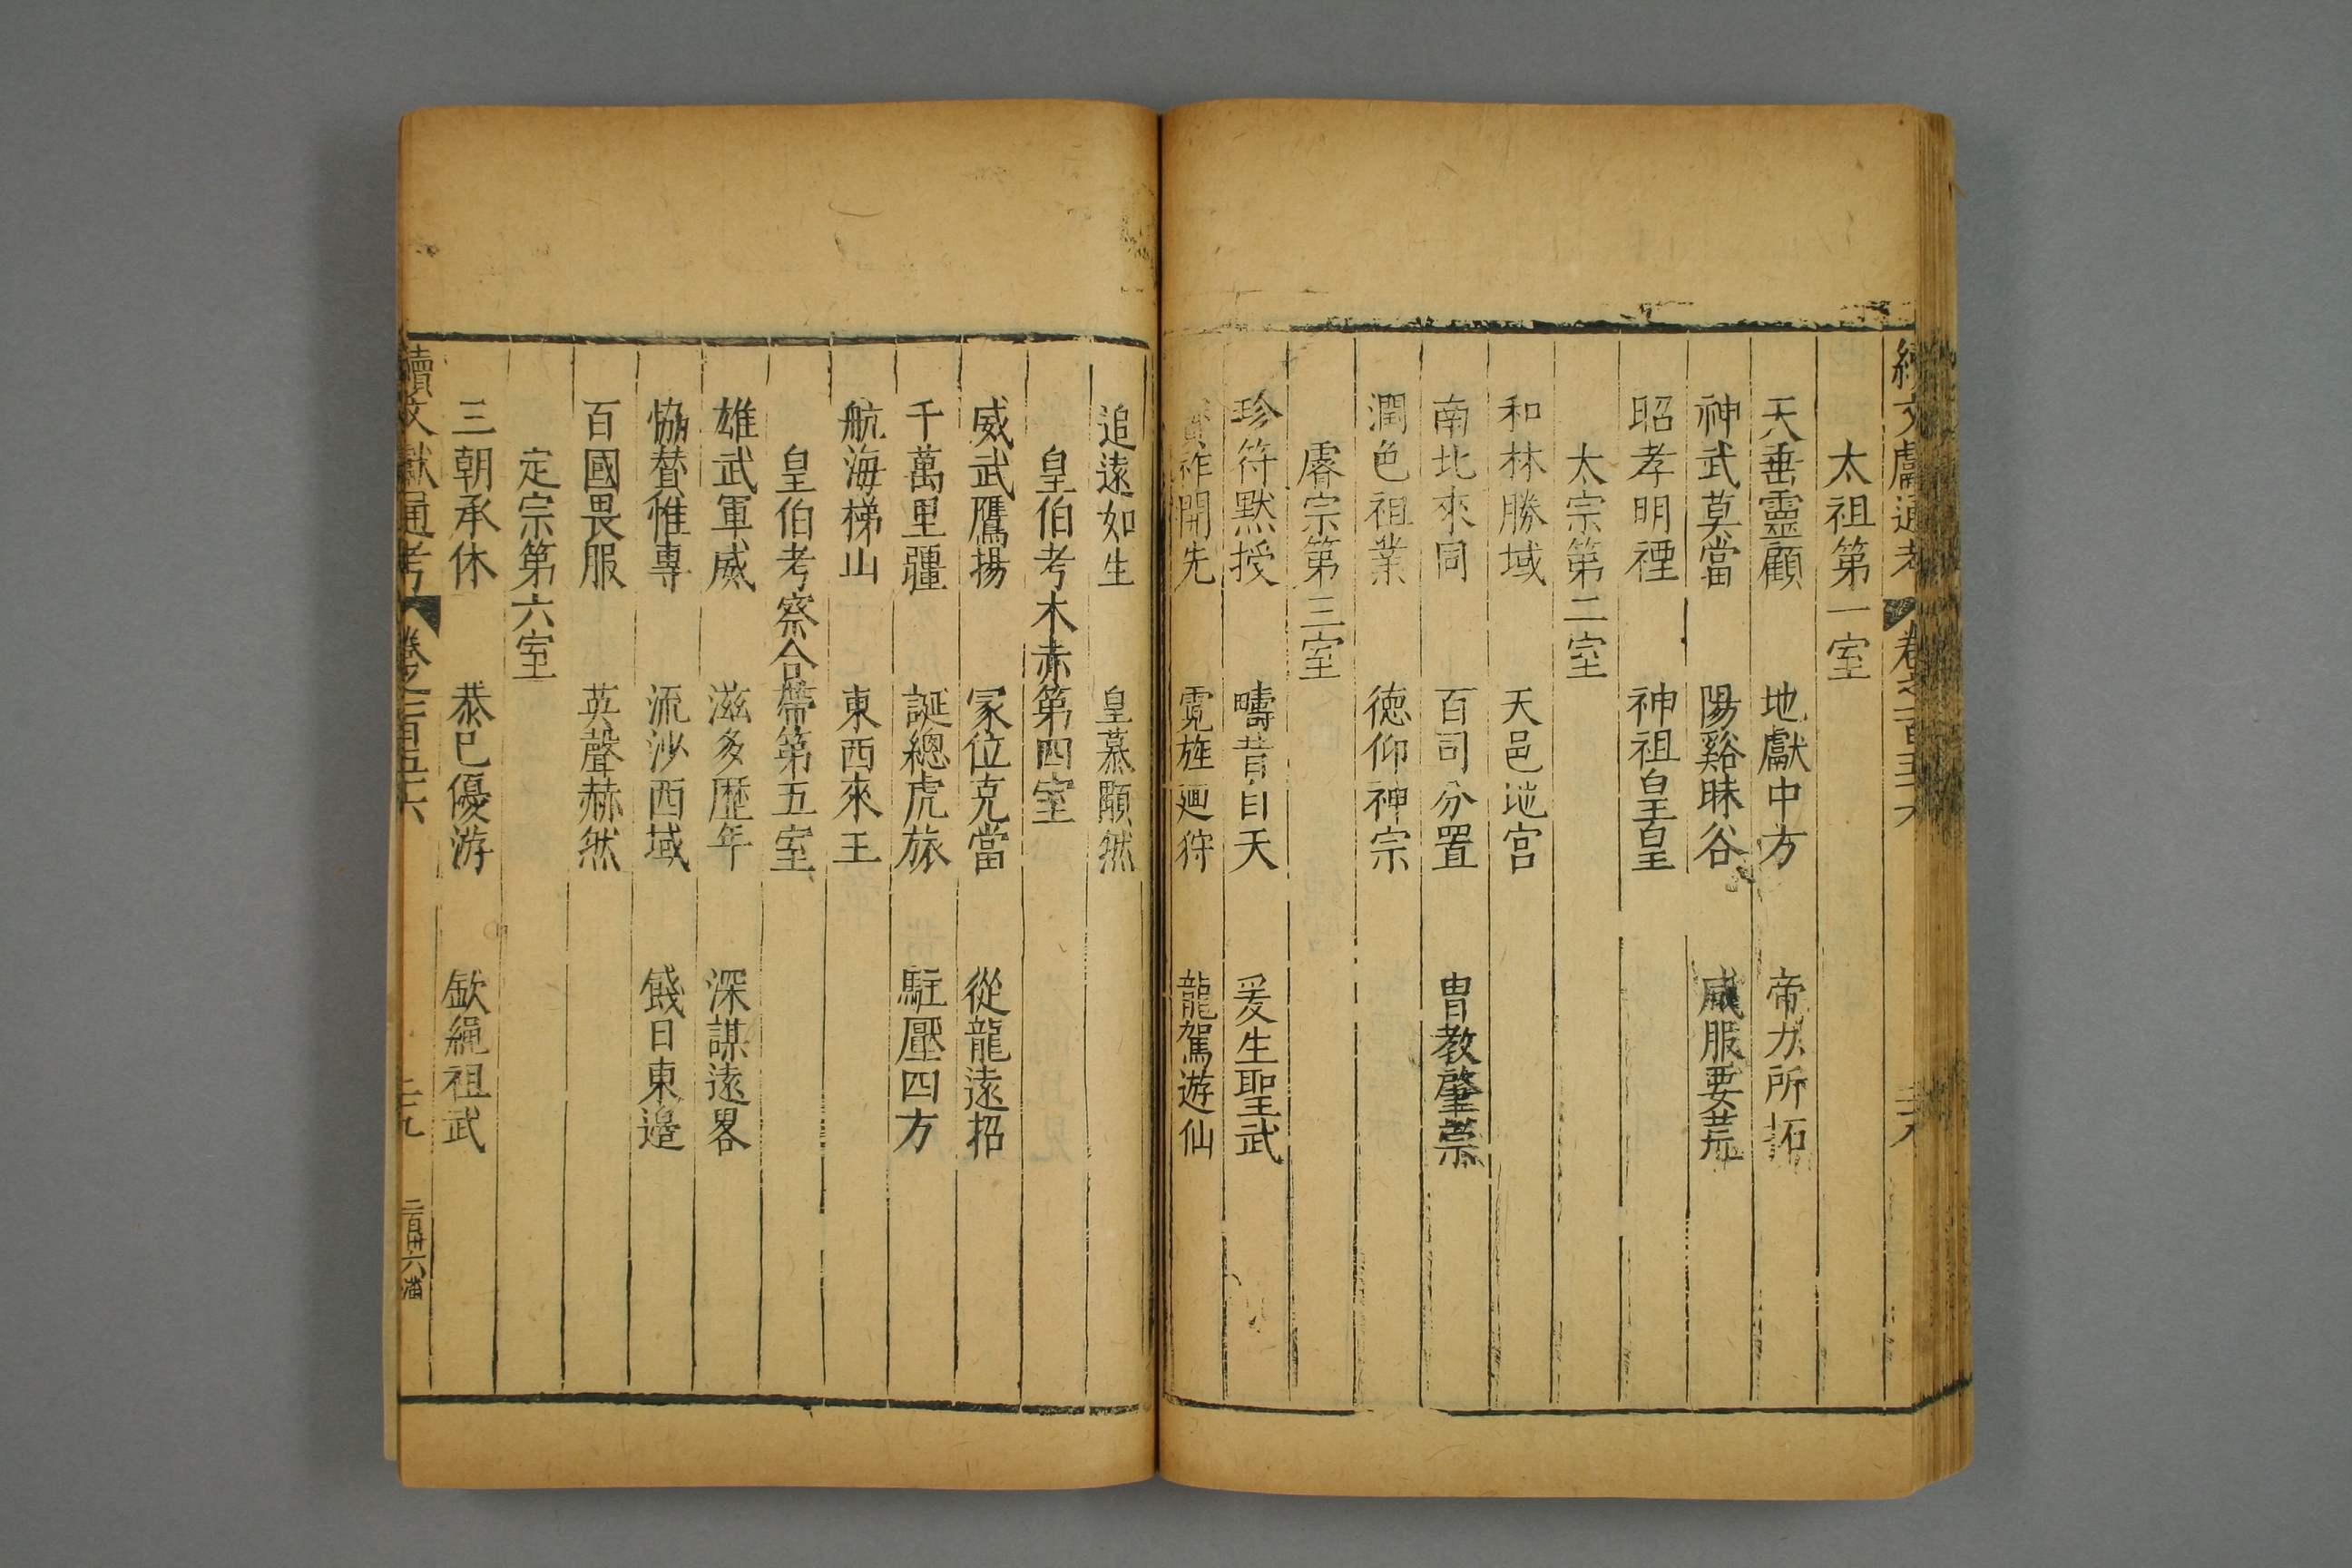 續文獻通考 卷之一百五十六 二十八
太祖第一室
天垂靈顧 地獻中方 帝力所拓
神武莫當 陽谿昧谷 咸服要荒
昭孝明禋 神祖皇皇
太宗第二室
和林勝域 天邑地宮
南北來同 百司分置 胄教肇崇
潤色祖業 德仰神宗
睿宗第三室
珍符默授 疇昔自天 爰生聖武
祚開先 霓旌廻狩 龍駕遊仙
追遠如生 皇慕顒然
皇伯考木赤第四室
威武鷹揚 冢位克當 從龍遠招
千萬里疆 誕總虎旅 駐壓四方
航海梯山 東西來王
皇伯考察合帶第五室
雄武軍威 滋多歷年 深謀遠畧
恊賛惟專 流沙西域 餞日東邉
百國畏服 英聲赫然
定宗第六室
三朝承休 恭巳優游 欽繩祖武
續文獻通考 卷之一百五十六 二十九 二百廿六